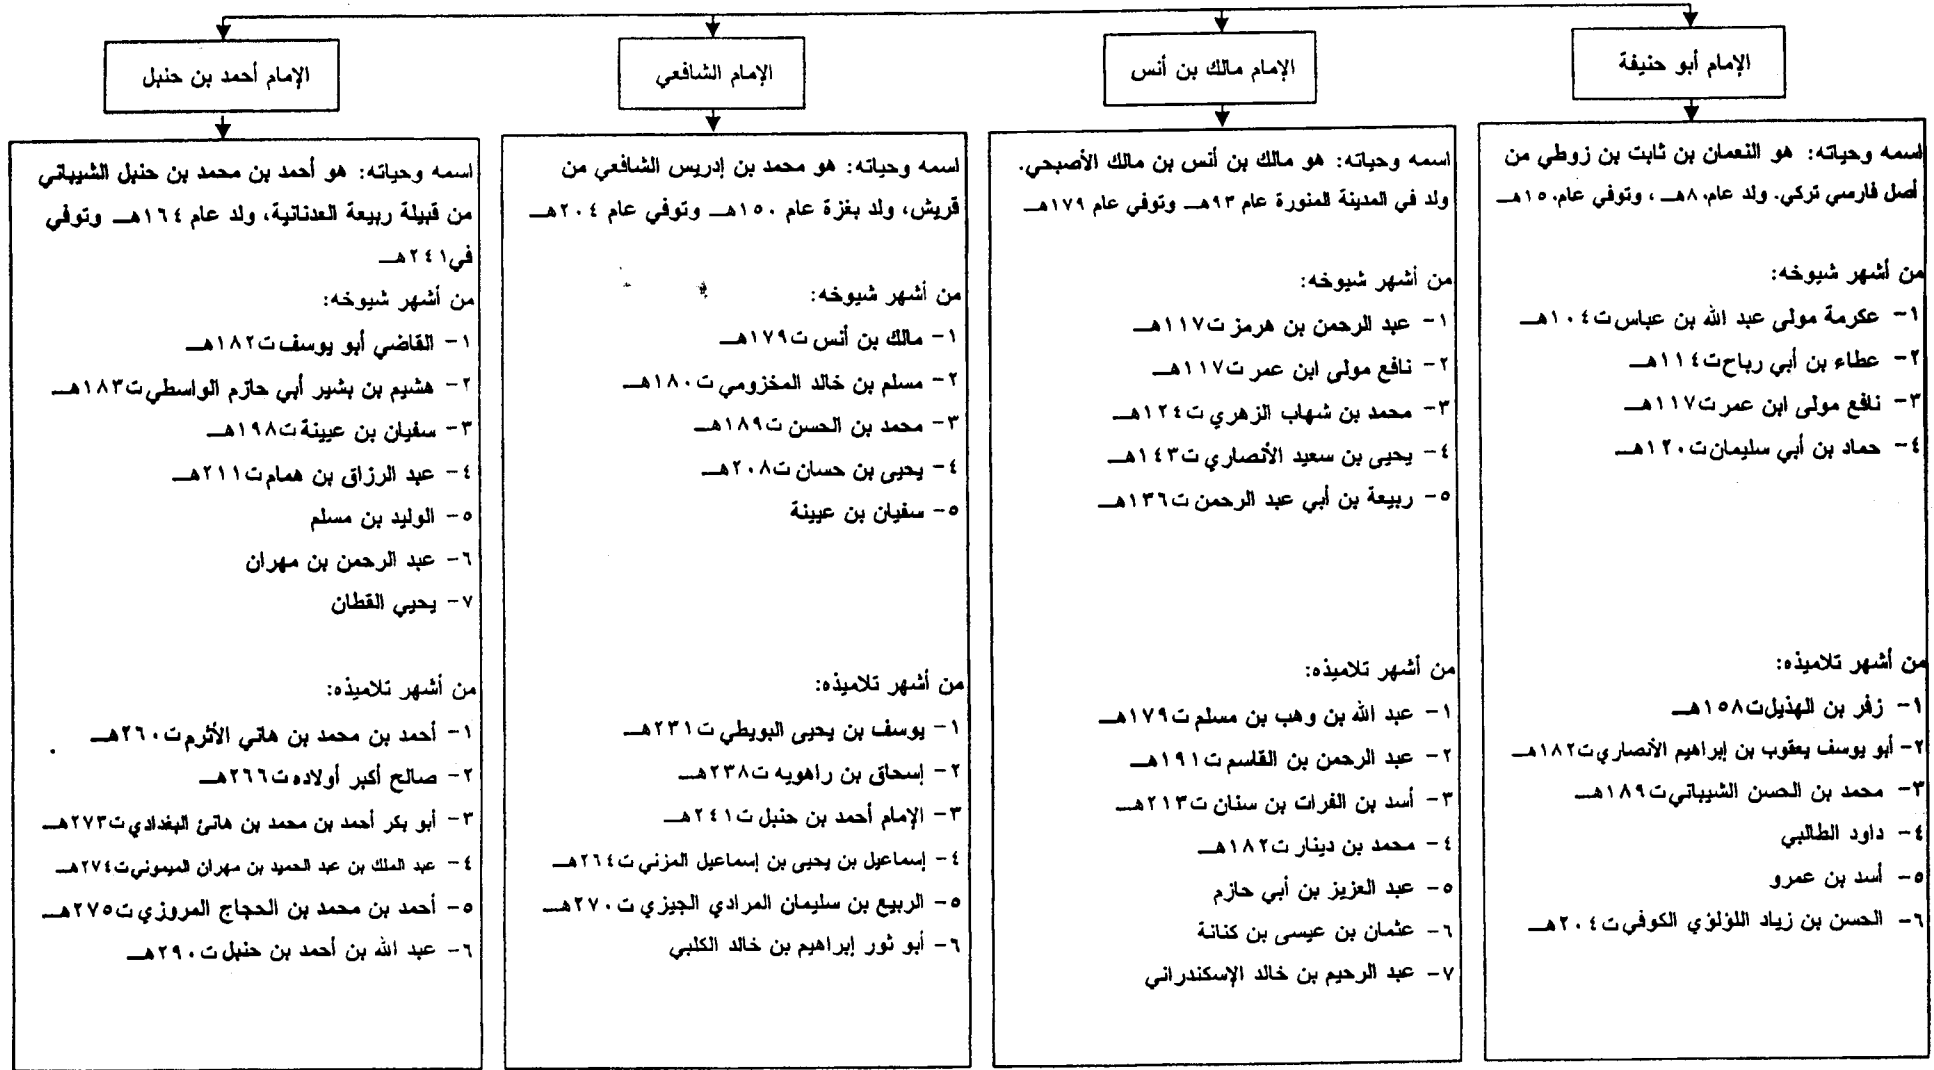 الإمام أبو حنيفة
اسمه وحياته: هو النعمان بن ثابت بن زوطي من
أصل فارسي تركي. ولد عام ٨٠هـ ، وتوفي عام ١٥٠هـ
من أشهر شيوخه:
١- عكرمة مولى عبد الله بن عباس ت١٠٤هـ
٢- عطاء بن أبي رباح ت١١٤هـ
٣- نافع مولى ابن عمر ت١١٧هـ
٤- حماد بن أبي سليمان ت١٢٠هـ
من أشهر تلاميذه:
١- زفر بن الهذيل ت١٥٨هـ
٢- أبو يوسف يعقوب بن إبراهيم الأنصاري ت١٨٢هـ
٣- محمد بن الحسن الشيباني ت١٨٩هـ
٤- داود الطالبي
٥- أسد بن عمرو
٦- الحسن بن زياد اللؤلؤي الكوفي ت٢٠٤هـ
الإمام مالك بن أنس
اسمه وحياته: هو مالك بن أنس بن مالك الأصبحي.
ولد في المدينة المنورة عام ٩٣هـ وتوفي عام ١٧٩هـ
من أشهر شيوخه:
١- عبد الرحمن بن هرمز ت١١٧هـ
٢- نافع مولى ابن عمر ت١١٧هـ
٣- محمد بن شهاب الزهري ت١٢٤هـ
٤- يحيى بن سعيد الأنصاري ت١٤٣هـ
٥- ربيعة بن أبي عبد الرحمن ت١٣٦هـ
من أشهر تلاميذه:
١- عبد الله بن وهب بن مسلم ت١٧٩هـ
٢- عبد الرحمن بن القاسم ت١٩١هـ
٣- أسد بن الفرات بن سنان ت٢١٣هـ
٤- محمد بن دينار ت١٨٢هـ
٥- عبد العزيز بن أبي حازم
٦- عثمان بن عيسى بن كنانة
٧- عبد الرحيم بن خالد الإسكندراني
الإمام الشافعي
اسمه وحياته: هو محمد بن إدريس الشافعي من
قريش، ولد بغزة عام ١٥٠هـ وتوفي عام ٢٠٤هـ
من أشهر شيوخه:
١- مالك بن أنس ت١٧٩هـ
٢- مسلم بن خالد المخزومي ت١٨٠هـ
٣- محمد بن الحسن ت١٨٩هـ
٤- يحيى بن حسان ت٢٠٨هـ
٥- سفيان بن عيينة
من أشهر تلاميذه:
١- يوسف بن يحيى البويطي ت٢٣١هـ
٢- إسحاق بن راهويه ت٢٣٨هـ
٣- الإمام أحمد بن حنبل ت٢٤١هـ
٤- إسماعيل بن يحيى بن إسماعيل المزني ت٢٦٤هـ
٥- الربيع بن سليمان المرادي الجيزي ت٢٧٠هـ
٦- أبو ثور إبراهيم بن خالد الكلبي
الإمام أحمد بن حنبل
اسمه وحياته: هو أحمد بن محمد بن حنبل الشيباني
من قبيلة ربيعة العدنانية، ولد عام ١٦٤هـ وتوفي
في٢٤١هـ
من أشهر شيوخه:
١- القاضي أبو يوسف ت١٨٢هـ
٢- هشيم بن بشير أبي حازم الواسطي ت١٨٣هـ
٣- سفيان بن عيينة ت١٩٨هـ
٤- عبد الرزاق بن همام ت٢١١هـ
٥- الوليد بن مسلم
٦- عبد الرحمن بن مهران
٧- يحيي القطان
من أشهر تلاميذه:
١- أحمد بن محمد بن هاني الأثرم ت٢٦٠هـ
٢- صالح أكبر أولاده ت٢٦٦هـ
٣- أبو بكر أحمد بن محمد بن هانئ البغدادي ت٢٧٣هـ
٤- عبد الملك بن عبد الحميد بن مهران الميموني ت٢٧٤هـ
٥- أحمد بن محمد بن الحجاج المروزي ت٢٧٥هـ
٦- عبد الله بن أحمد بن حنبل ت٢٩٠هـ